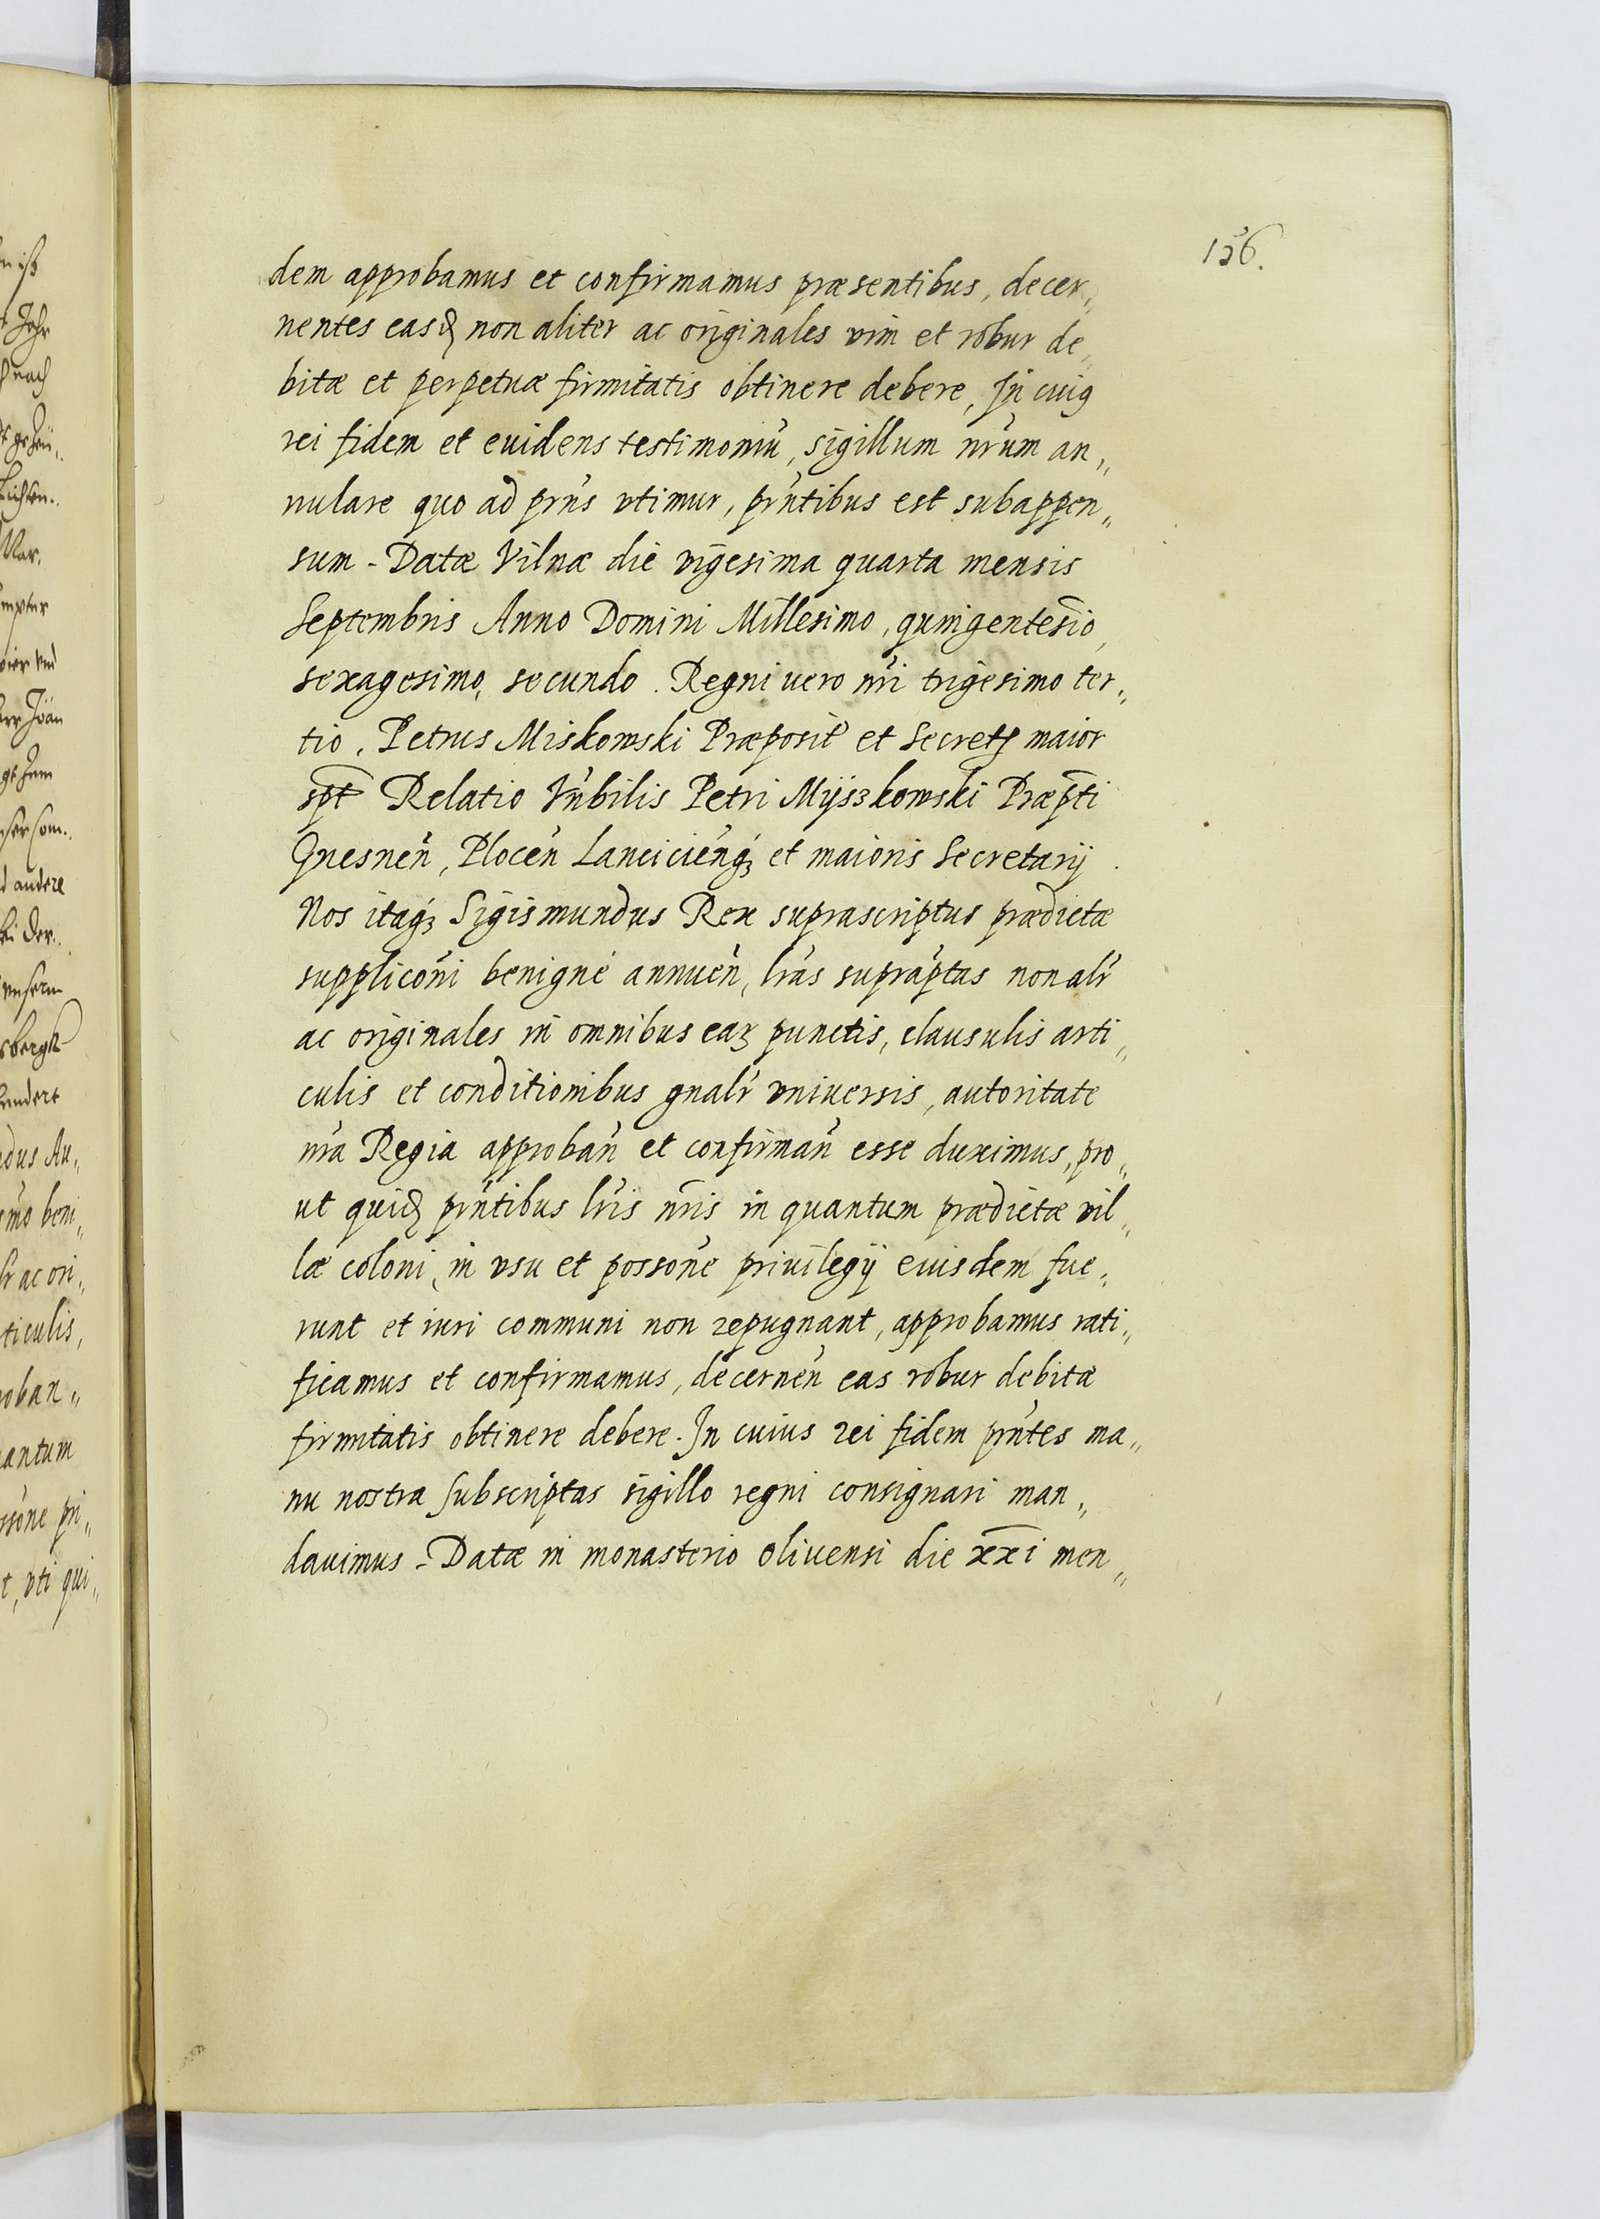 156.
dem approbamus et confirmamus præsentibus, decer„
nentes easꝗ non aliter ac originales vim et robur de„
bitæ et perpetuæ firmitatis obtinere debere, In cuiꝰ
rei fidem et euidens testimoniũ, sigillum nrũm an„
nulare quo ad prñs vtimur, prñtibus est subappen„
sum - Datæ Vilnæ die vigesima quarta mensis
Septembris Anno Domini Millesimo, quingentesĩo,
sexagesimo, secundo. Regni vero nr̃i trigesimo ter„
tio. Petrus Miskowski Præposit9 et Secretꝰ maior
spt̃ Relatio Vñbilis Petri Mÿszkowski Præpt̃i
Gnesneñ, Ploceñ Lancicieñqꝫ et maioris Secretarij
Nos itaqꝫ Sigismundus Rex suprascriptus prædictæ
supplicõni benignè annueñ, lr̃as supraptas̃ non alr̃
ac originales in omnibus eaꝝ punctis, clausulis arti„
culis et conditionibus gnalr̃ vniuersis, autoritate
nr̃a Regia approbañ et confirmañ esse duximus, pro„
ut quiꝗ prñtibus lr̃is nr̃is in quantum prædictæ vil„
læ coloni, in vsu et possonẽ priuilegij euisdem fue„
runt et iuri communi non repugnant, approbamus rati„
ficamus et confirmamus, decerneñ eas robur debitæ
firmitatis obtinere debere. In cuius rei fidem prñtes ma„
nu nostra subscriptas sigillo regni consignari man„
dauimus - Datæ in monasterio Oliuensi die xxi men„